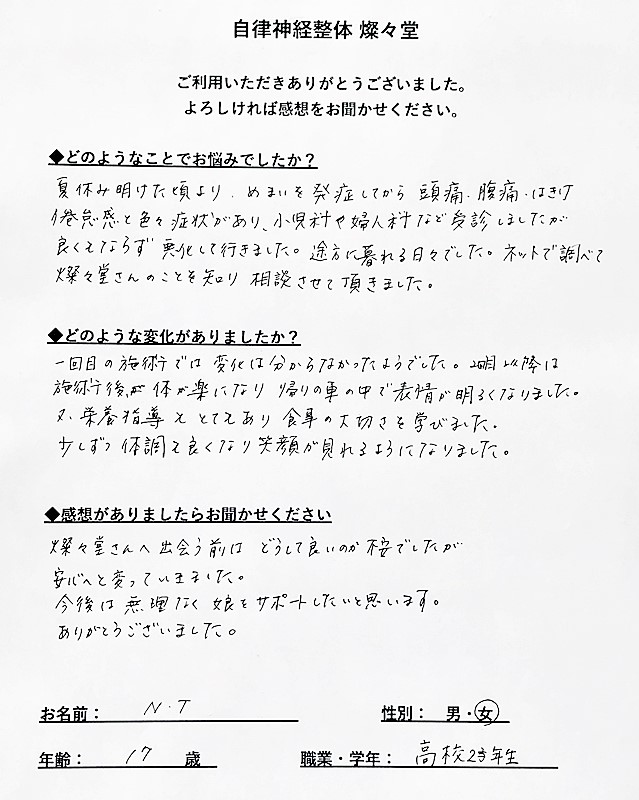 自律神経整体 燦々堂
ご利用いただきありがとうございました。
よろしければ感想をお聞かせください。
◆どのようなことでお悩みでしたか？
夏休み明けた頃より、めまいを発症してから 頭痛・腹痛・はきけ
倦怠感と色々症状があり、小児科や婦人科など受診しましたが
良くもならず 悪化して行きました。途方に暮れる日々でした。ネットで調べて
燦々堂さんのことを知り 相談させて頂きました。
◆どのような変化がありましたか？
一回目の施術では 変化は分からなかったようでした。2回目以降は
施術後、体が楽になり 帰りの車の中で表情が明るくなりました。
又、栄養指導も とてもあり 食事の大切さを学びました。
少しずつ 体調も良くなり 笑顔が見れるようになりました。
◆感想がありましたらお聞かせください
燦々堂さんへ 出会う前は どうして良いのか 不安でしたが
安心へと変っていきました。
今後は 無理なく 娘をサポートしたいと思います。
ありがとうございました。
お名前： N・T 性別： 男・女
年齢： 17 歳 職業・学年： 高校2年生